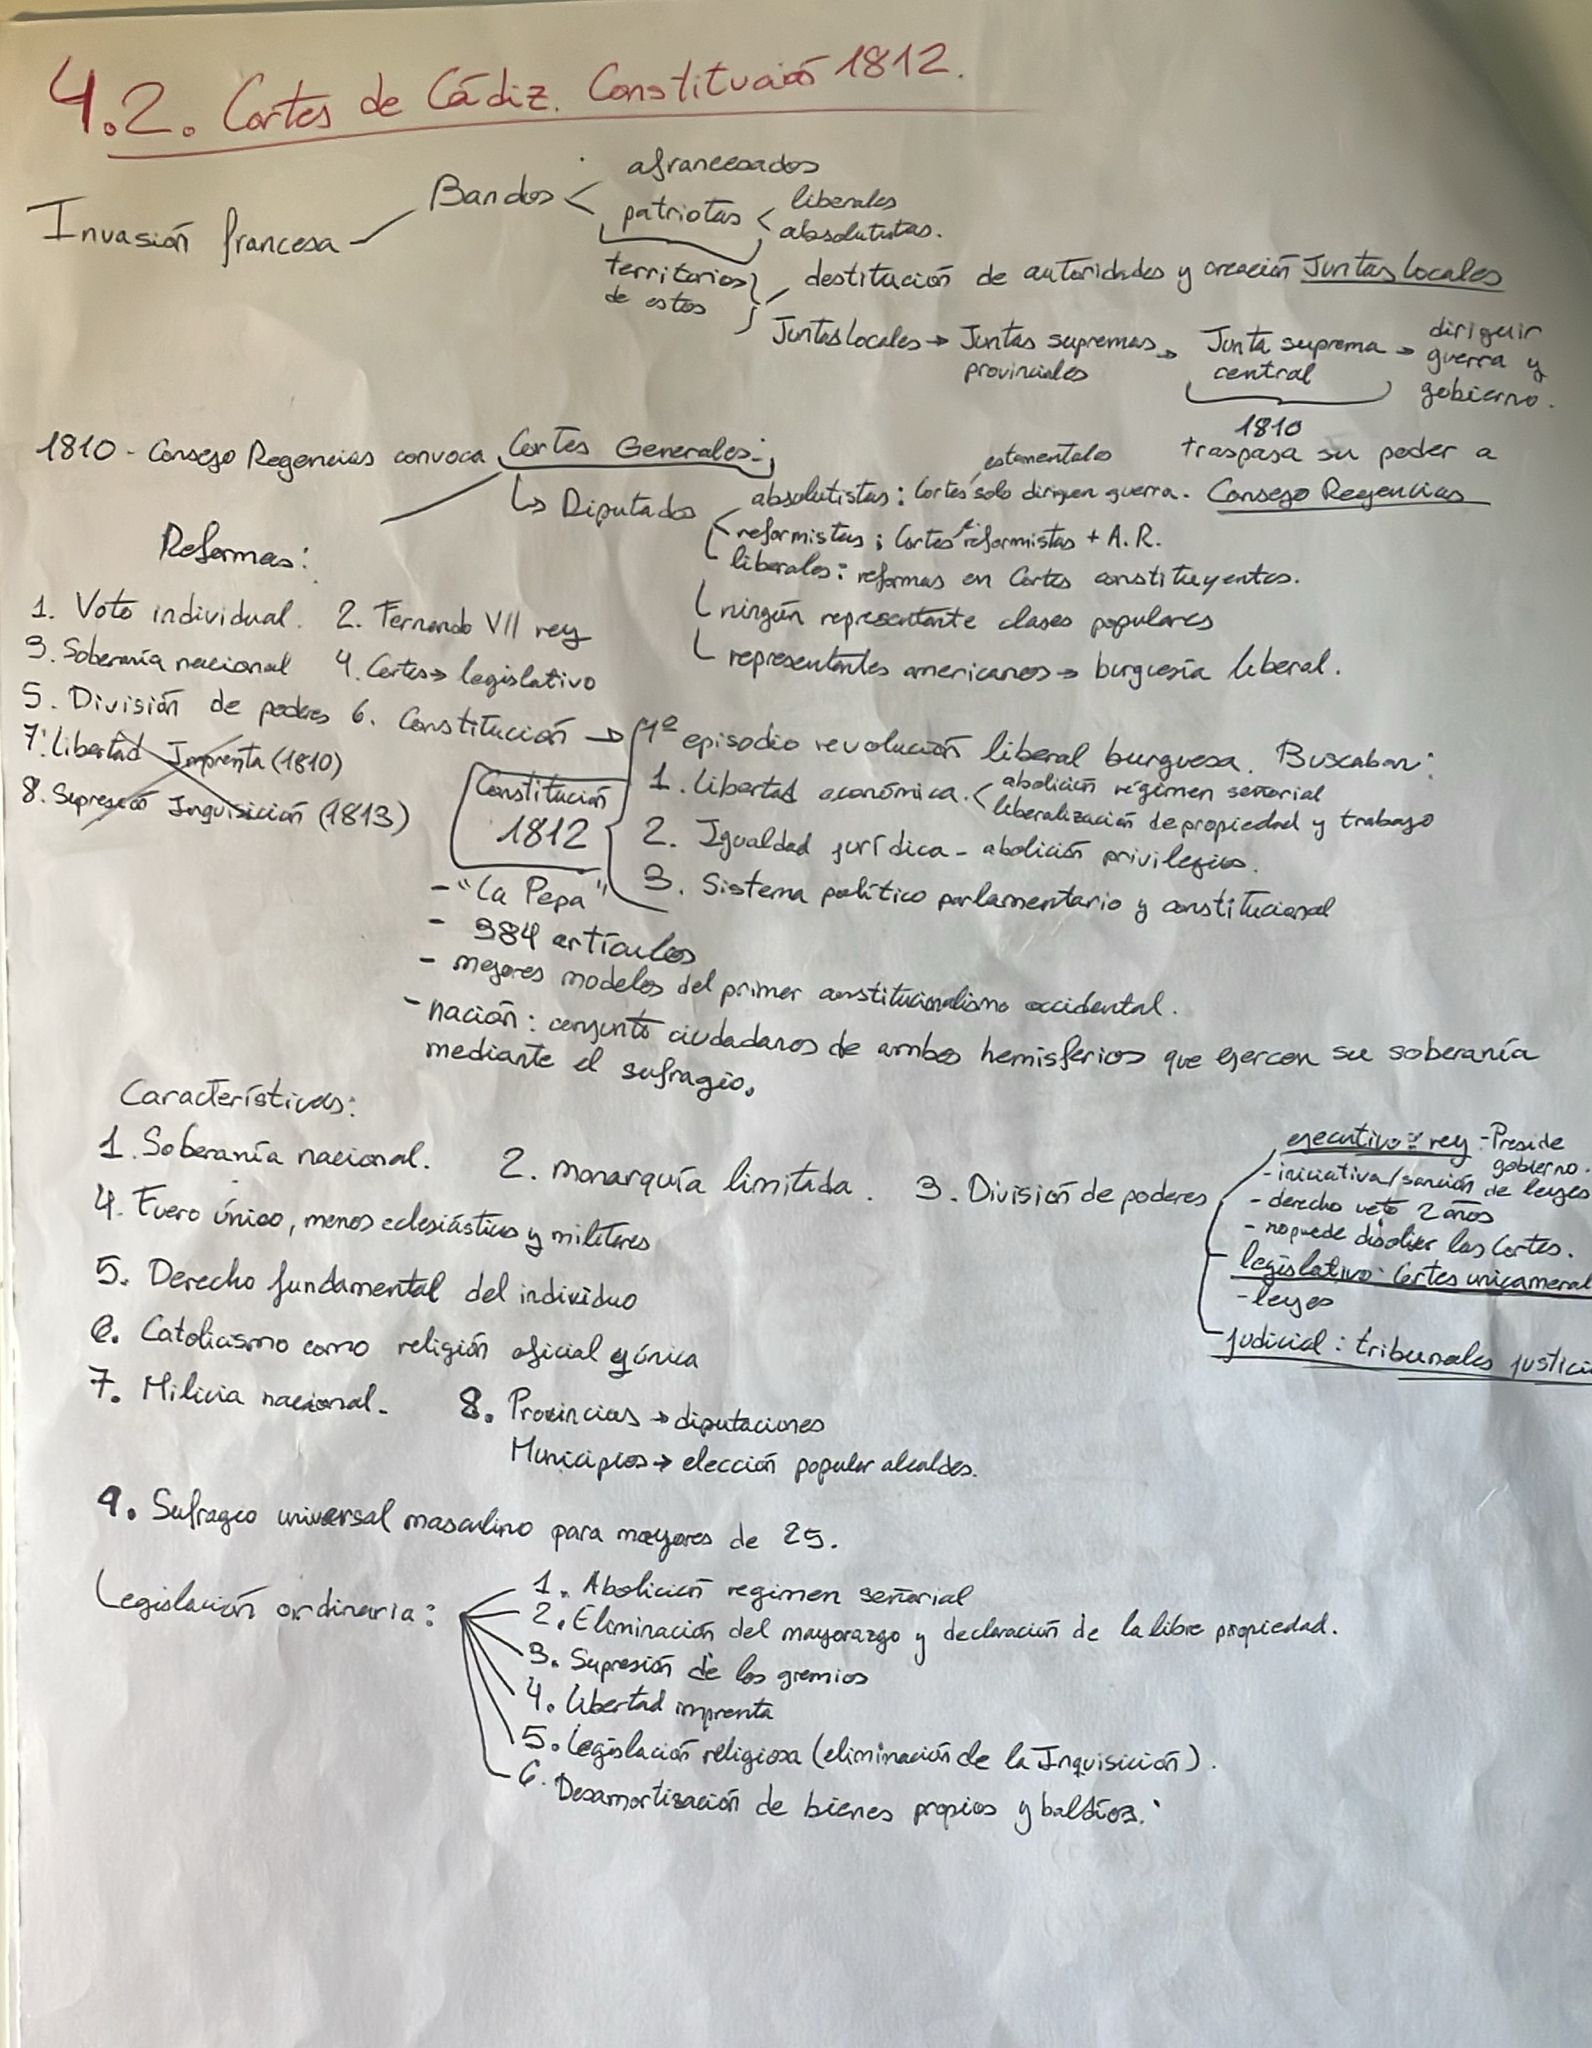 4.2. Cortes de Cádiz. Constitución 1812.
Invasión francesa — Bandos < afrancesados
patriotas < liberales
absolutistas.
territorios de estos
destitución de autoridades y creación Juntas locales
Juntas locales → Juntas supremas provinciales → Junta suprema central → diriguir guerra y gobierno.
1810 traspasa su poder a Consejo Regencias
1810 - Consejo Regencias convoca Cortes Generales:
↳ Diputados
absolutistas: Cortes estamentales solo dirigen guerra.
reformistas: Cortes reformistas + A.R.
liberales: reformas en Cortes constituyentes.
ningún representante clases populares
representantes americanos → burguesía liberal.
Reformas:
1. Voto individual. 2. Fernando VII rey
3. Soberanía nacional 4. Cortes → legislativo
5. División de poderes 6. Constitución →
7. Libertad Imprenta (1810)
8. Supresión Inquisición (1813)
Constitución 1812
1º episodio revolución liberal burguesa. Buscaban:
1. Libertad económica. < abolición régimen señorial
liberalización de propiedad y trabajo
2. Igualdad jurídica - abolición privilegios.
3. Sistema político parlamentario y constitucional
- "La Pepa"
- 384 artículos
- mejores modelos del primer constitucionalismo occidental.
- nación: conjunto ciudadanos de ambos hemisferios que ejercen su soberanía
mediante el sufragio.
Características:
1. Soberanía nacional. 2. Monarquía limitada. 3. División de poderes
ejecutivo: rey - Preside gobierno.
- iniciativa/sanción de leyes
- derecho veto 2 años
- no puede disolver las Cortes.
legislativo: Cortes unicameral
- leyes
judicial: tribunales justici
4. Fuero único, menos eclesiásticos y militares
5. Derecho fundamental del individuo
6. Catolicismo como religión oficial y única
7. Milicia nacional. 8. Provincias → diputaciones
Municipios → elección popular alcaldes.
9. Sufragio universal masculino para mayores de 25.
Legislación ordinaria:
1. Abolición regimen señorial
2. Eliminación del mayorazgo y declaración de la libre propiedad.
3. Supresión de los gremios
4. Libertad imprenta
5. Legislación religiosa (eliminación de la Inquisición).
6. Desamortización de bienes propios y baldíos.